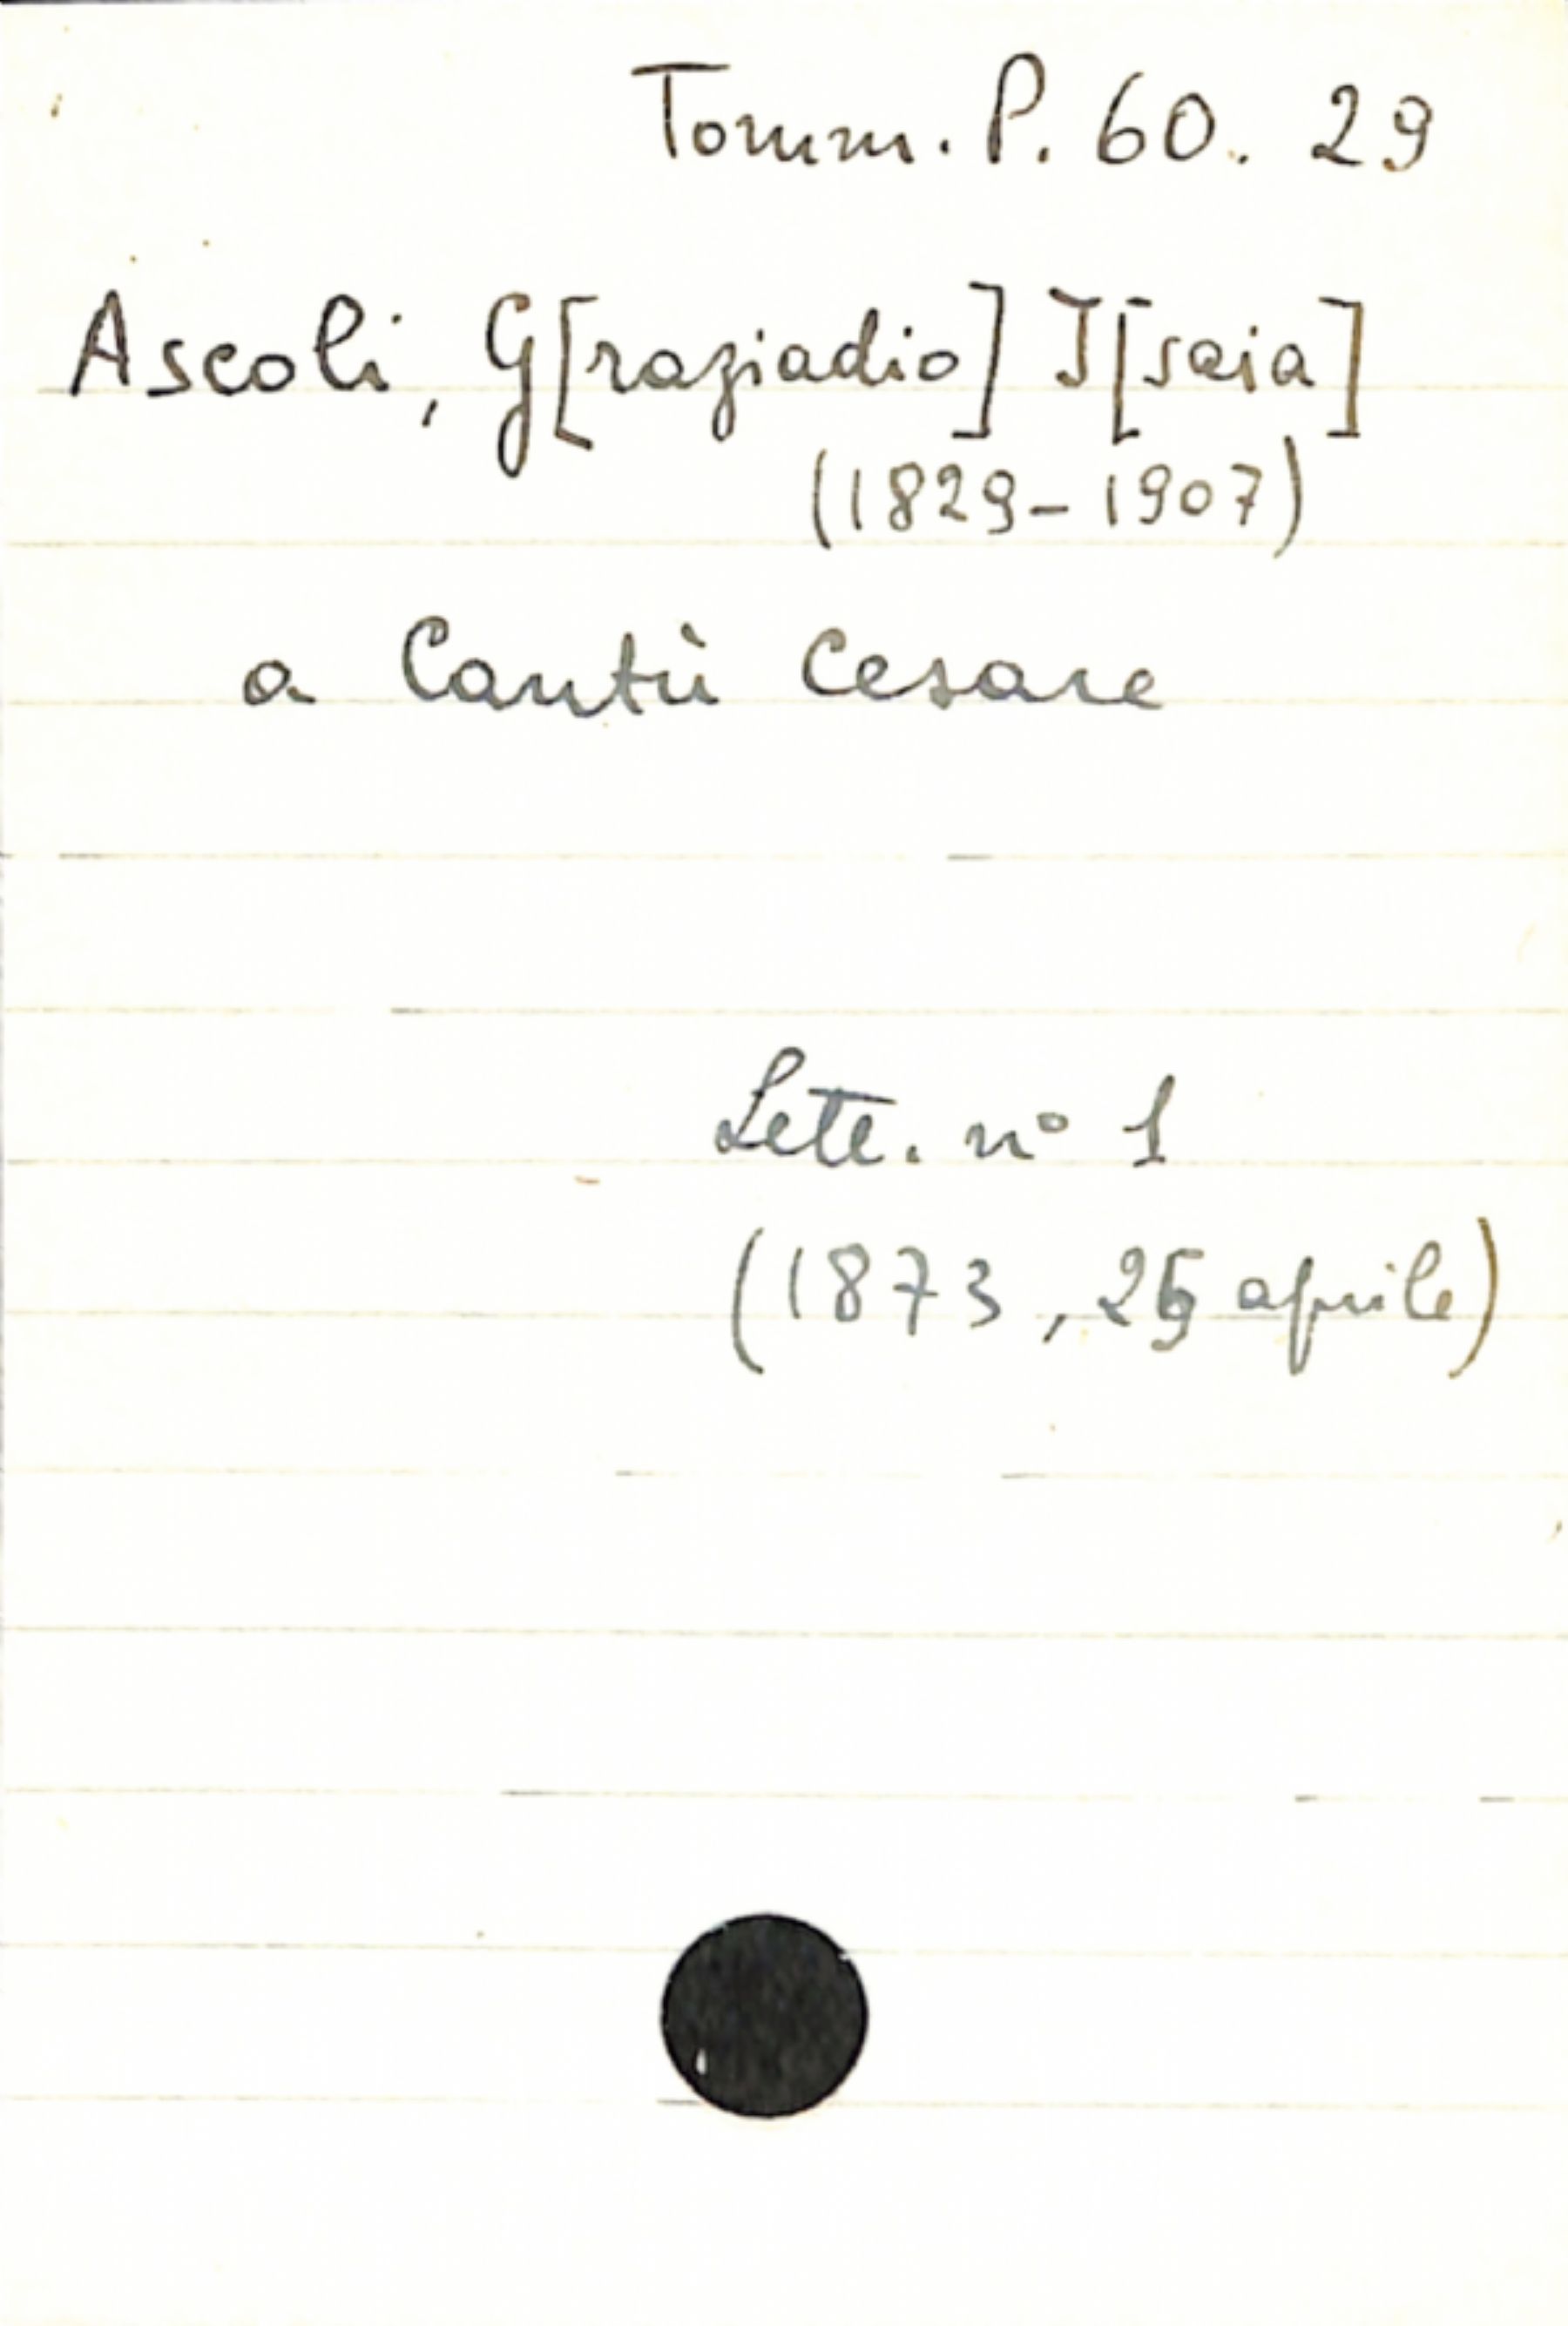 Tomm. P. 60. 29
Ascoli, G[raziadio] I[saia]
(1829-1907)
a Cantù Cesare
Lett. n° 1
(1873, aprile)